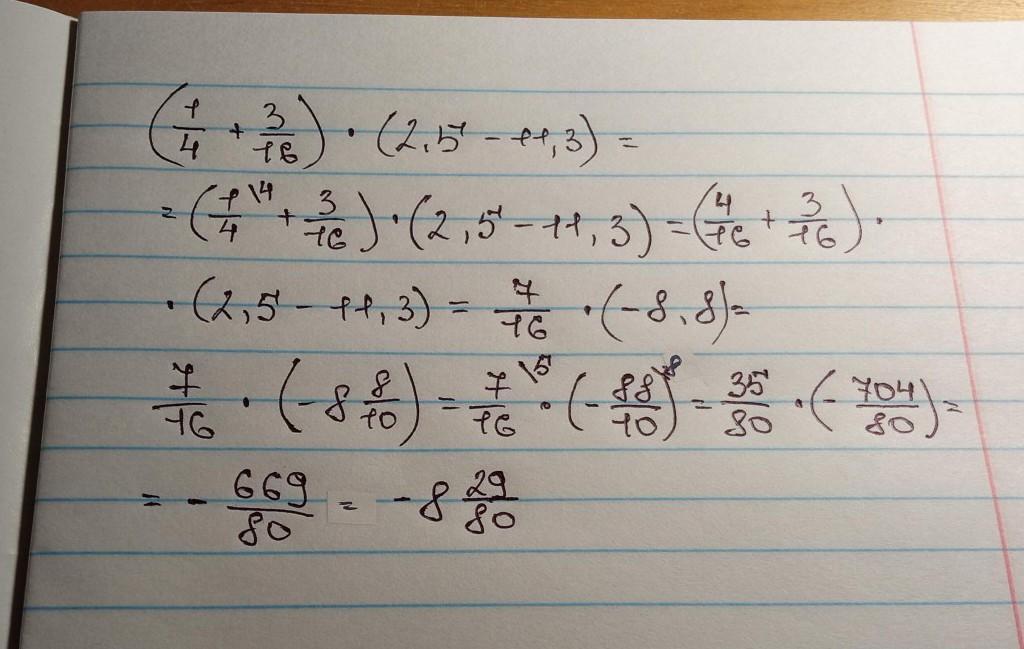 (1/4 + 3/16) · (2,5 - 11,3) =
= (1/4 \4 + 3/16) · (2,5 - 11,3) = (4/16 + 3/16) ·
· (2,5 - 11,3) = 7/16 · (-8,8) =
7/16 · (-8 8/10) = 7/16 \5 · (- 88/10 \8) = 35/80 · (- 704/80) =
= - 669/80 = -8 29/80